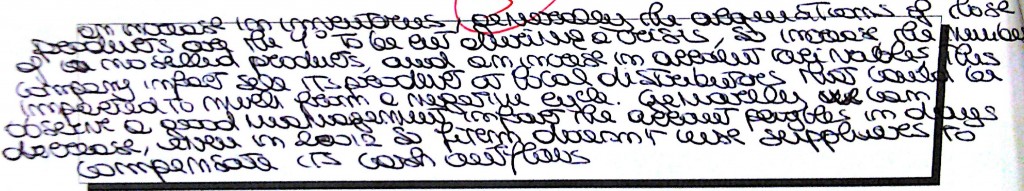 an increase in inventories, generally the acquisitions of those
products are the 1° to be cut during a crisis, so increase the number
of unselled products, and an increase in account receivables this
company in fact sells its product at local distributors that could be
impacted to much from a negative cycle. Generally we can
observe a good management in fact the account payables in days
decrease, even in 2012 so firem doesn't use suppliers to
compensate its cash outflows